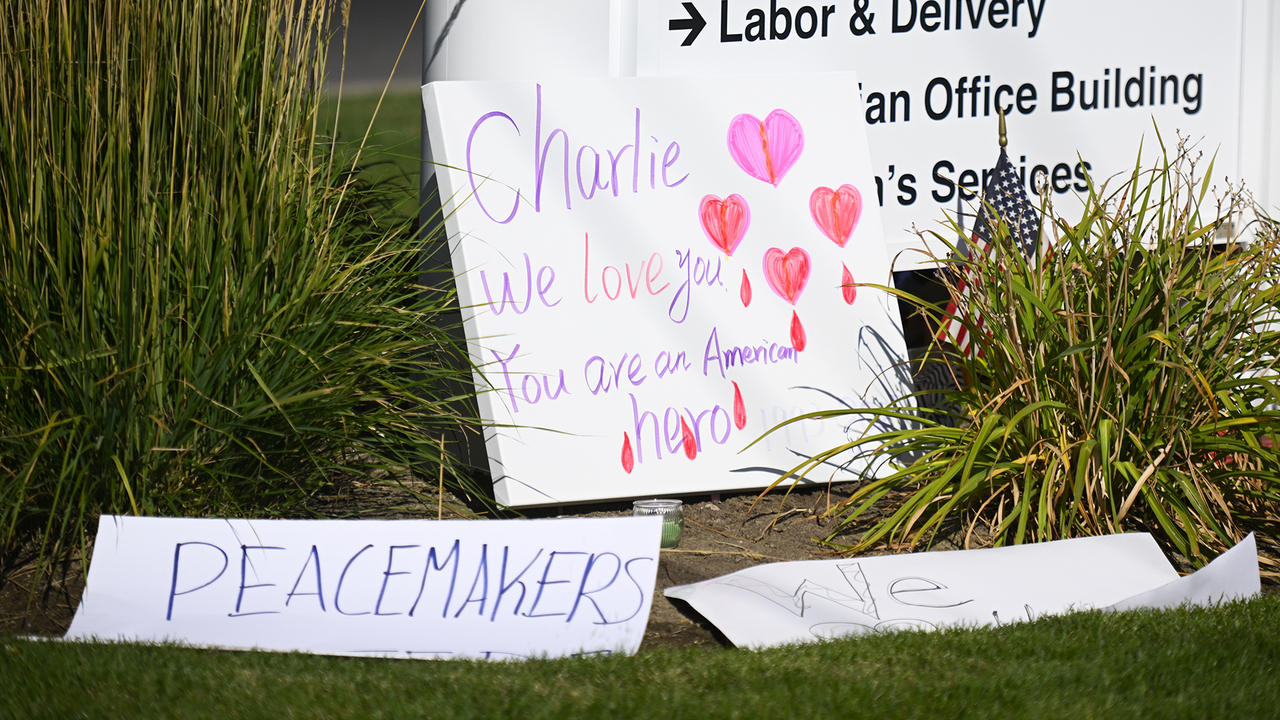 → Labor & Delivery
ian Office Building
n's Services
Charlie
We love you
You are an American
hero
PEACEMAKERS
We